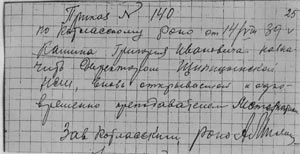 Приказ № 140 25
по Котласскому роно от 14/VIII 39 г.
Кашина Григория Ивановича назна-
чить директором Щипицынской
НСШ, вновь открываемой и одно-
временно преподавателем
Зав Котласским роно